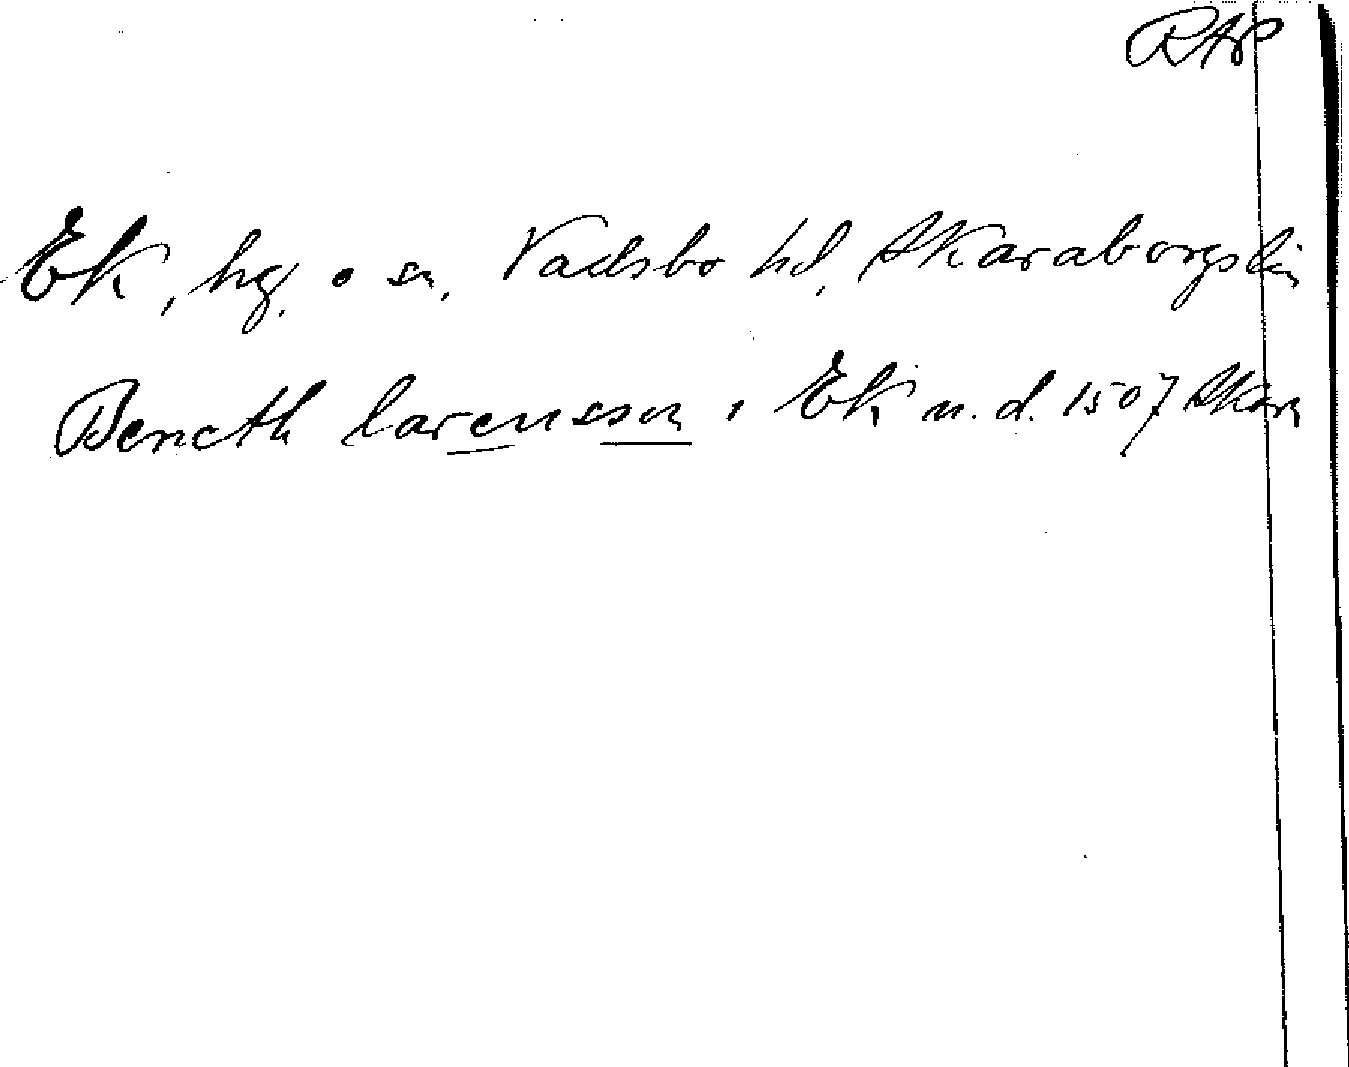 RAP
Ek, hg. o sn, Vadsbo hd, Skaraborgs län
Bencth larensson i Ek u.d. 1507 Skara